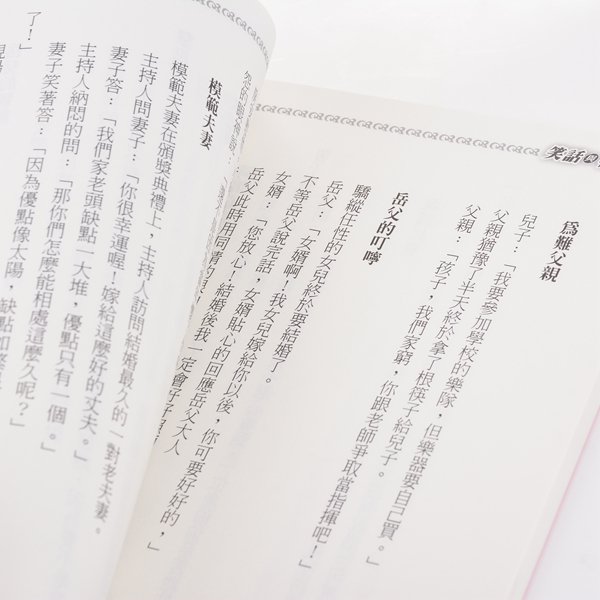 笑話
爲難父親
兒子：「我要參加學校的樂隊，但樂器要自己買。」
父親猶豫了半天終於拿了根筷子給兒子。
父親：「孩子，我們家窮，你跟老師爭取當指揮吧！」
岳父的叮嚀
驕縱任性的女兒終於要結婚了。
岳父：「女婿啊！我女兒嫁給你以後，你可要好好的，」
不等岳父說完話，女婿貼心的回應岳父大人
女婿：「您放心！結婚後我一定會好好
岳父此時用同情的眼
模範夫妻
模範夫妻在頒獎典禮上，主持人訪問結婚最久的一對老夫妻。
主持人問妻子：「你很幸運喔！嫁給這麼好的丈夫。」
妻子答：「我們家老頭缺點一大堆，優點只有一個。」
主持人納悶的問：「那你們怎麼能相處這麼久呢？」
妻子笑著答：「因為優點像太陽，缺點如繁星
了！」